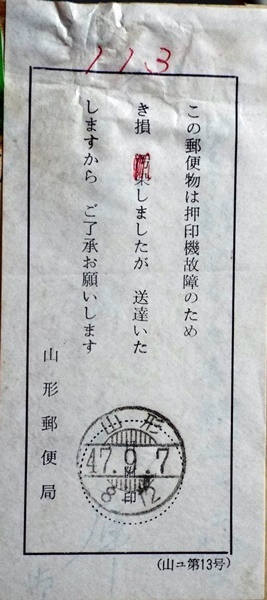 113
この郵便物は押印機故障のため
き損 しましたが 送達いた
しますから ご了承お願いします
山形郵便局
山形
47.9.7
附
8-12
印
(山ユ第13号)